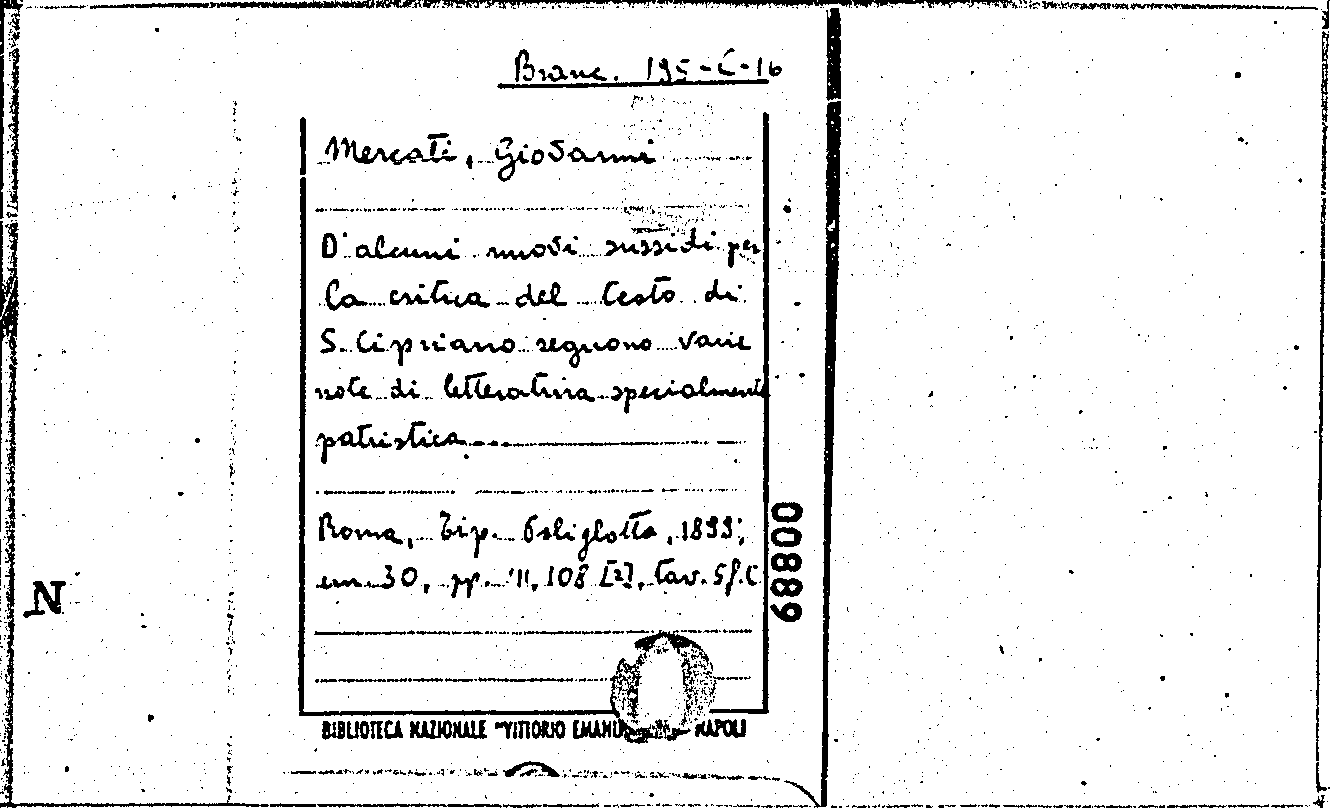 Branc. 195-C-16
Mercati, Giovanni
D'alcuni nuovi sussidi per
la critica del testo di
S. Cipriano seguono varie
note di letteratura specialmente
patristica...
Roma, Tip. Poliglotta, 1899;
cm 30, pp. 108 [2], tav. 5 f.t
BIBLIOTECA NAZIONALE "VITTORIO NAPOLI
68800
N